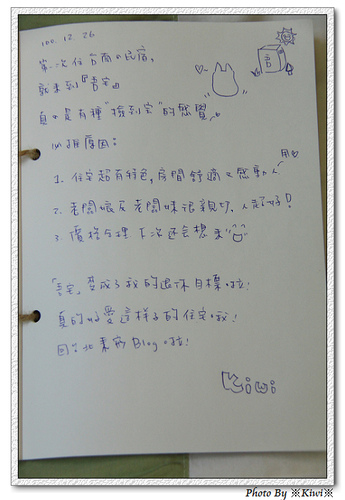 100.12.26
第一次住台南の民宿,
就來到『吉宅』
真的是有種"撿到宅"的感覺
必推原因:
1. 住宅超有特色,房間舒適又感動人
用心♡
2. 老闆娘及老闆妹很親切,人超好!
3. 價格合理 下次還會想來
『吉宅』變成了我的退休目標啦!
真的好愛這樣子的住宅哦!
回台北來寫Blog啦!
Kiwi
吉
Photo By ※Kiwi※